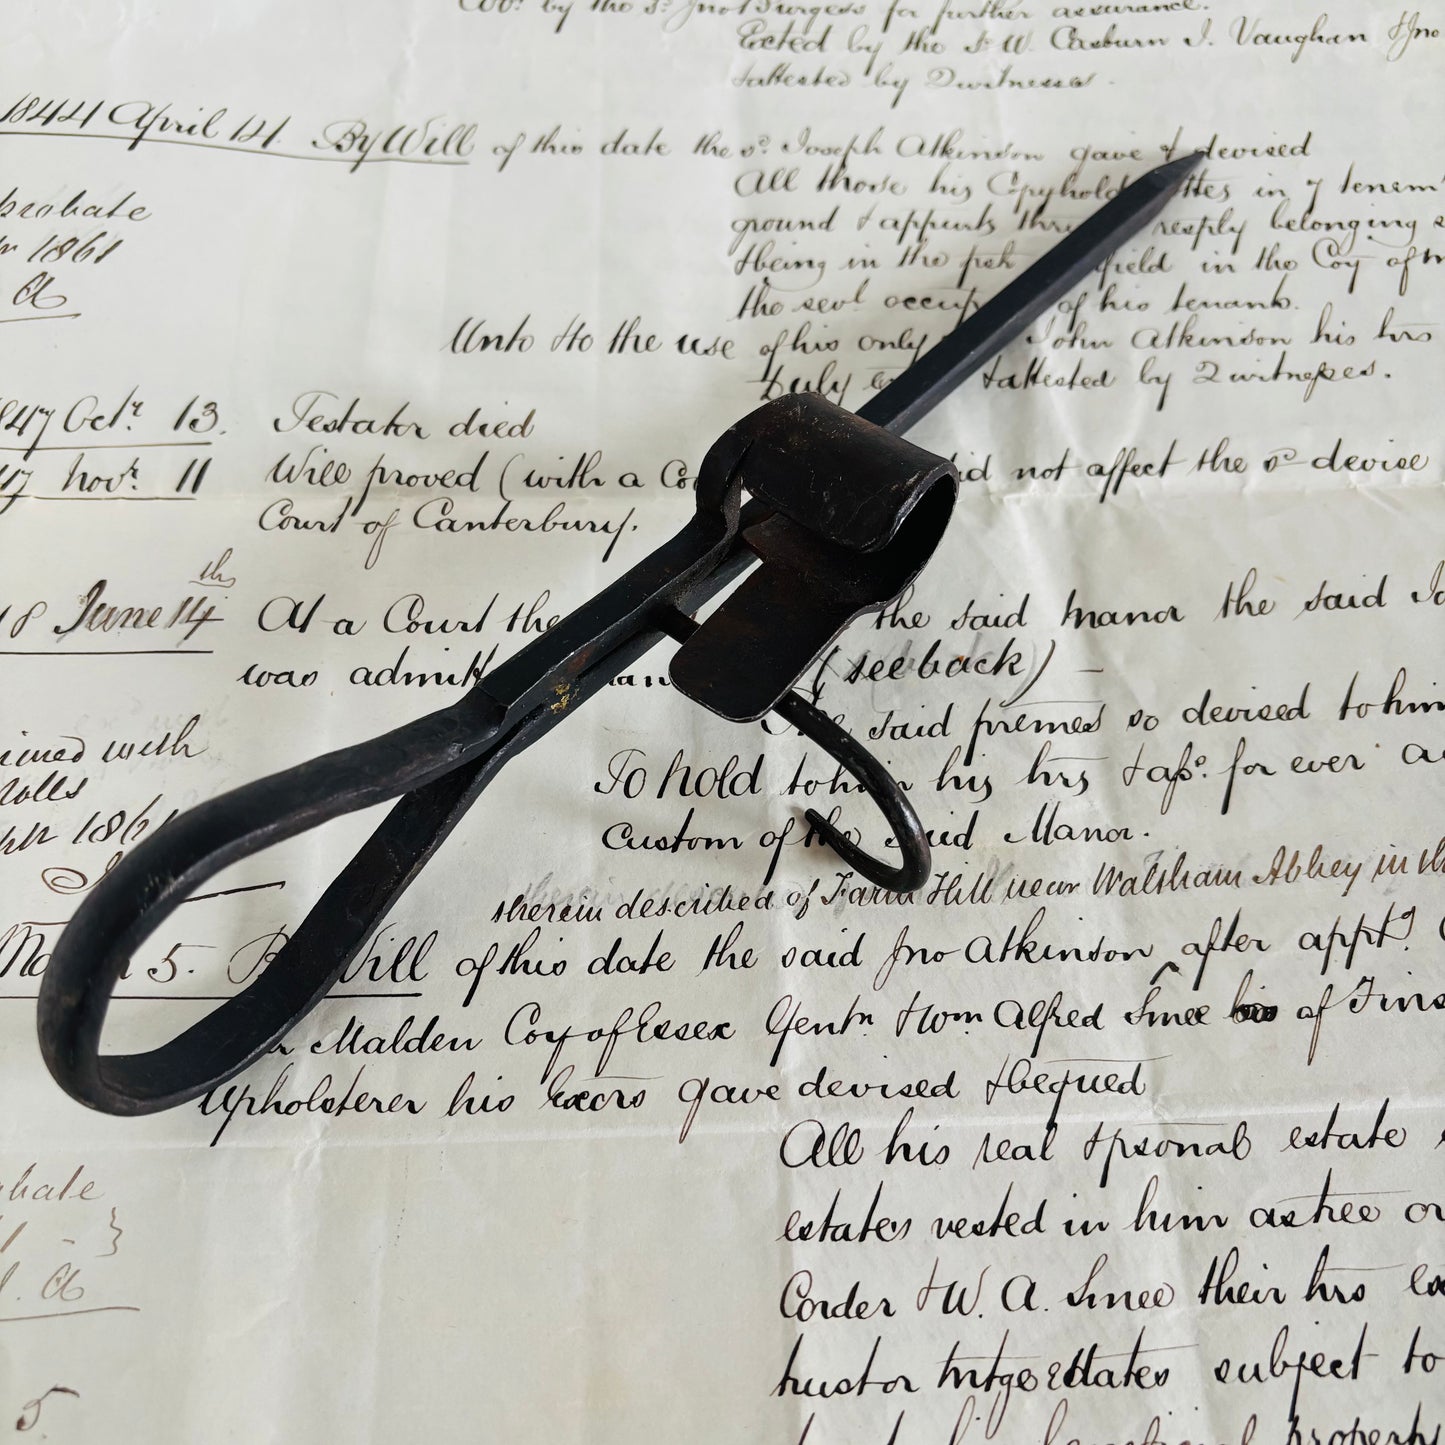 Cov.t by the s.d Jno Burgess for further assurance.
Exted by the s.d W. Casburn I. Vaughan & Jno
& attested by 2 witnesses.
1844 April 121. By Will of this date the s.d Joseph Atkinson gave & devised
All those his Copyhold in 7 tenemts
probate ground & appurts resply belonging
1861 & being in the psh field in the Coy of
A the sevl occup of his tenants.
Unto & to the use of his only John Atkinson his hrs
Duly & attested by 2 witnesses.
1847 Octr. 13. Testator died
47 Novr. 11 Will proved (with a did not affect the sd devise
Court of Canterbury.
18 June 14th At a Court the said Manor the said
was admitt (see back)
said premes so devised to him
with
Rolls To hold to him his hrs & ass. for ever
1861 Custom of the said Manor.
therein described of Farm Hill near Waltham Abbey in
5. By Will of this date the said Jno Atkinson after apptg.
Malden Coy of Essex Gentn & Wm Alfred Smee of Fins
Upholsterer his Exors gave devised & bequed
All his real & psonal estate
probate
estates vested in him as tree or
A
Corder & W. A. Smee their hrs
trust or mtge estates subject to
5.
beneficial property